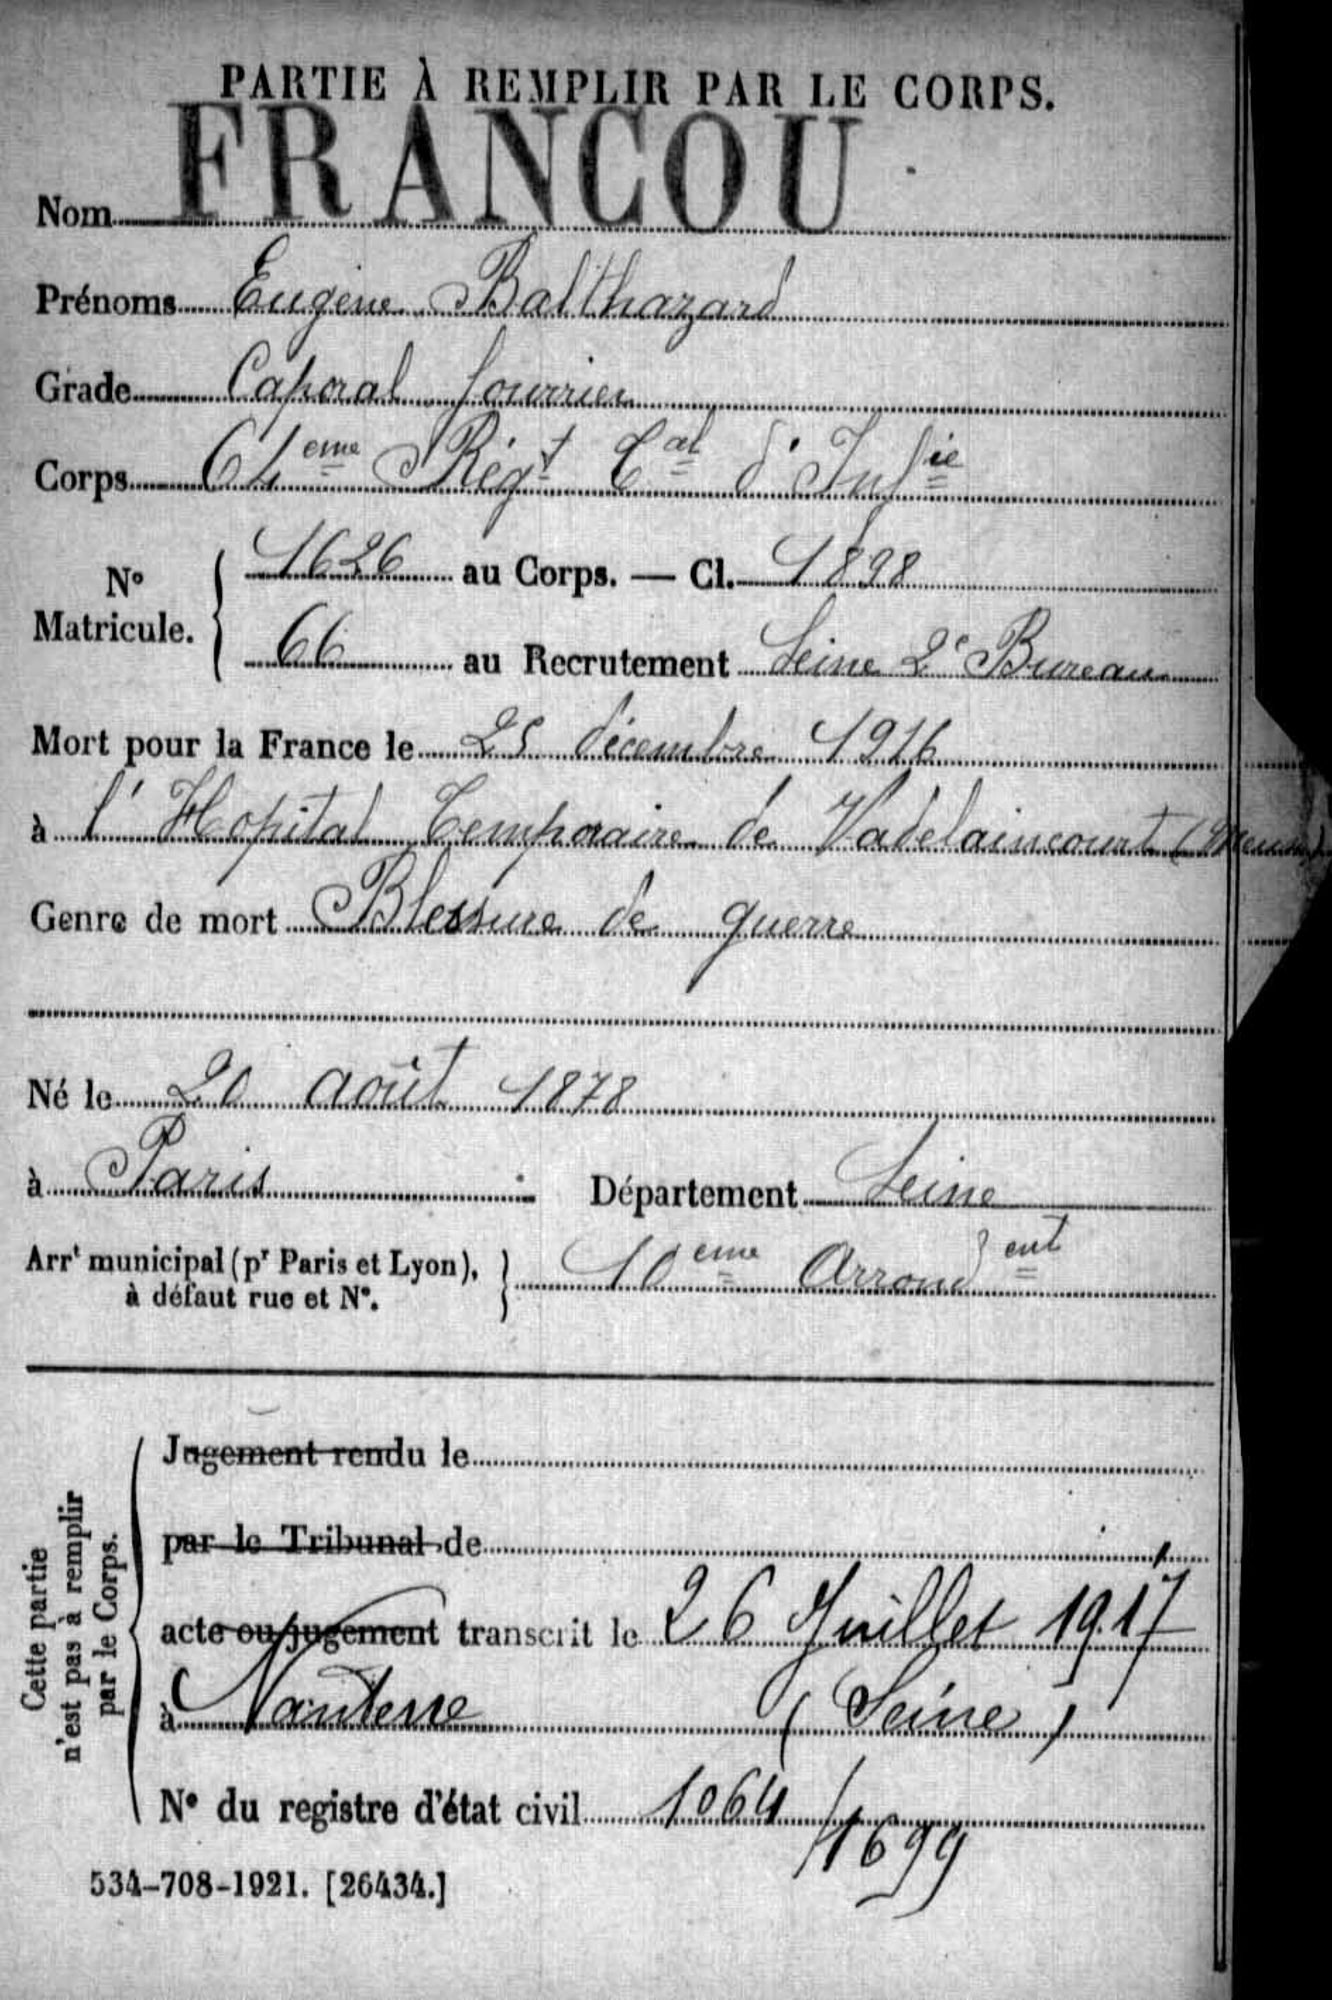 PARTIE À REMPLIR PAR LE CORPS.
Nom FRANCOU
Prénoms Eugène Balthazard
Grade Caporal fourrier
Corps 64eme Régt Cal d'Infie
No Matricule. 1626 au Corps. — Cl. 1898
66 au Recrutement Seine 2e Bureau
Mort pour la France le 25 décembre 1916
à l'Hopital Temporaire de Vadelaincourt (Meuse)
Genre de mort Blessure de guerre
Né le 20 août 1878
à Paris Département Seine
Arrt municipal (pr Paris et Lyon), à défaut rue et No. 10eme Arrondent
Cette partie n'est pas à remplir par le Corps.
Jugement rendu le
par le Tribunal de
acte ou jugement transcrit le 26 Juillet 1917
à Nanterre (Seine)
No du registre d'état civil 1064/1699
534-708-1921. [26434.]